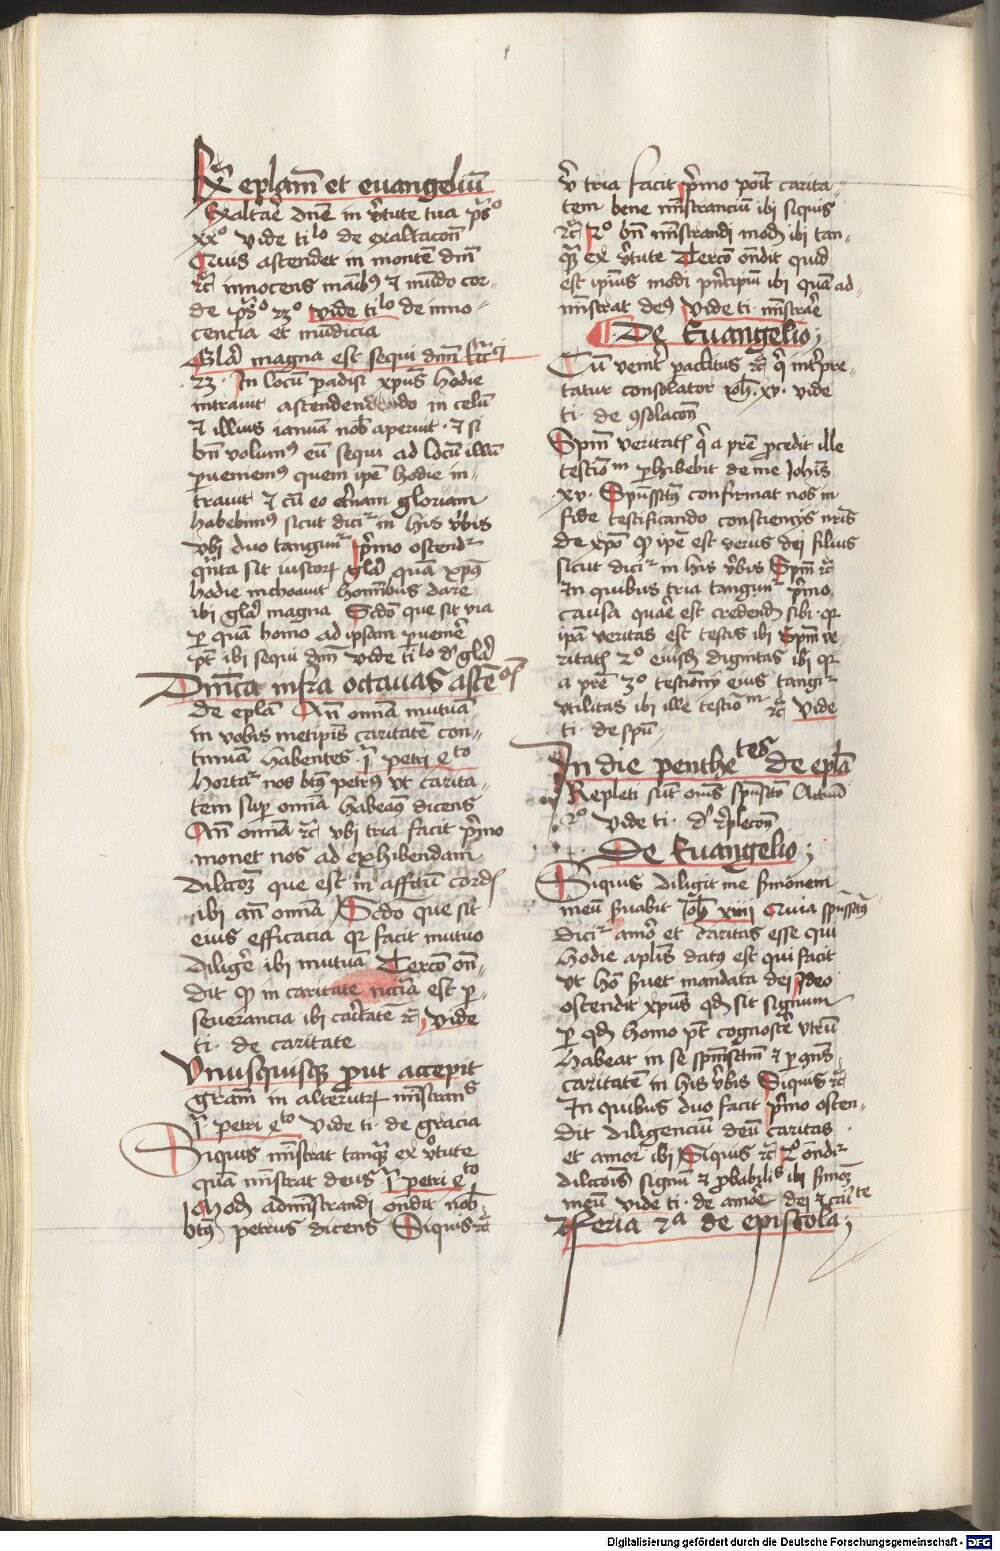 eplam̄ et euangeliū
Exaltare dn̄e in v̄tute tua ps̄o
xxo vide tilo de exaltacōn
Quis ascendet in montē dn̄i
rc̄ innocens manibꝰ ⁊ mūdo cor-
de ps̄o 23o vide tilo de inno-
cencia et mūdicia
Gla̅ magna est sequi dn̄m
23 · In locū padisi xpūs hodie
intrauit ascendendo in celū
⁊ illius ianuā nob̄ aperuit · ⁊ si
bn̄ volumꝰ eū sequi ad locū illū
pueniemꝰ quem ipe̅ hodie in-
trauit ⁊ cū eo et̄nam gloriam
habebimꝰ sicut dicir in his v̄bis
vbi duo tangunr p̄mo ostendr
q̄nta sit iustoꝝ gla̅ quā xpūs
hodie inchoauit hominibus dare
ibi gla̅ magna Sc̄do que sit via
ꝑ quā homo ad ipsam pueniē
pt̄ ibi sequi dn̄m vide tilo d' gla̅
Dn̄ica infra octauas ascēoꝭ
de epl̄a An̄ om̄ia mutuā
in vobis metipīs caritatē con-
tinuā habentes · i petri qto
Hortar nos bt̄us petrꝰ vt carita-
tem sup om̄ia habeamꝰ dicens
An̄ om̄ia rc̄ vbi tria facit p̄mo
monet nos ad exhibendam
dilcōem que est in affectu cordꝭ
ibi an̄ om̄ia Sc̄do que sit
eius efficacia qꝛ facit mutuo
diligē ibi mutuā Tercō on̄-
dit ꝙ in caritate nc̄ia est ꝑ-
seuerancia ibi caritatē rc̄ vide
ti · de caritate
Vnusquisqꝫ prout accepit
grām in alterutrꝝ mīstrans
i petri qto vide ti · de gracia
Siquis mīstrat tanqꝫ ex v̄tute
quā mīstrat deus i petri qto
Modū adminīstrandi on̄dit nob̄
bt̄us petrus dicens Siquis rc̄
v̄ tria facit p̄mo poīt carita-
tem bene mīstranciū ibi siquis
rc̄ 2o bn̄ mīstrandi modū ibi tan-
qꝫ ex v̄tute Tercō on̄dit quid
est ipius modi pn̄cipiū ibi quā ad-
mīstrat deꝰ vide ti · mīstrare
De Euangelio;
Cū venit paclitus rc̄ q̄ int̄pre-
tatur consolator Joh̄ · xv · vide
ti · de ꝯsolacōn
Spm̄ veritatꝭ q̄ a pr̄e ꝓcedit ille
testiom phibebit de me Johīs
xv · Spūssctūs confirmat nos in
fide testificando consciencijs nr̄is
de xpō ꝙ ipe̅ est verus dei filius
sicut dicir in his v̄bis Spm̄ rc̄
In quibus tria tangunr p̄mo
causa quare est credendū sibi · qꝛ
ipa̅ veritas est testis ibi spm̄ ve-
ritatꝭ 2o eiusdē dignitas ibi qꝛ
a pr̄e 3o testimonij eius tangir
vtilitas ibi ille testiom rc̄ vide
ti · de spū
In die penthetes de epl̄a
Repleti sūt om̄s spūscto Actuū
2o vide ti · d' replecōn
De Euangelio;
Siquis diligit me s̄monem
meū s̄uabit Joh̄ xiiii Quia spūssctūs
dicir amor et caritas esse qui
hodie aplīs datꝰ est qui facit
vt hō s̄uet mandata dei ideo
ostendit xpūs qd̄ sit signum
ꝑ qd̄ homo pt̄ cognoscē vtrū
habeat in se spm̄sctm̄ ⁊ ꝑ ꝯn̄s
caritatē in his v̄bis Siquis rc̄
In quibus duo facit p̄mo osten-
dit diligenciū deū caritas
et amor ibi Siquis rc̄ 2o on̄dir
dilcōis signū ⁊ ꝓbabilis ibi s̄moē
meū vide ti · de amōe dei ⁊ caīte
Feria 2a de epistola;
Digitalisierung gefördert durch die Deutsche Forschungsgemeinschaft - DFG